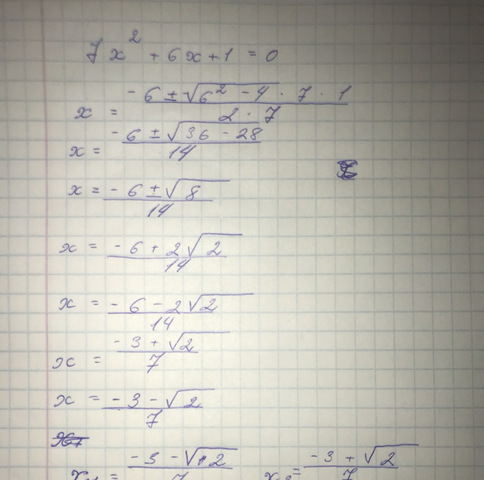 7x² + 6x + 1 = 0
x = (-6 ± √(6² - 4 · 7 · 1)) / (2 · 7)
x = (-6 ± √(36 - 28)) / 14
x = (-6 ± √8) / 14
x = (-6 + 2√2) / 14
x = (-6 - 2√2) / 14
x = (-3 + √2) / 7
x = (-3 - √2) / 7
x₁ = (-3 - √2) / 7 x₂ = (-3 + √2) / 7